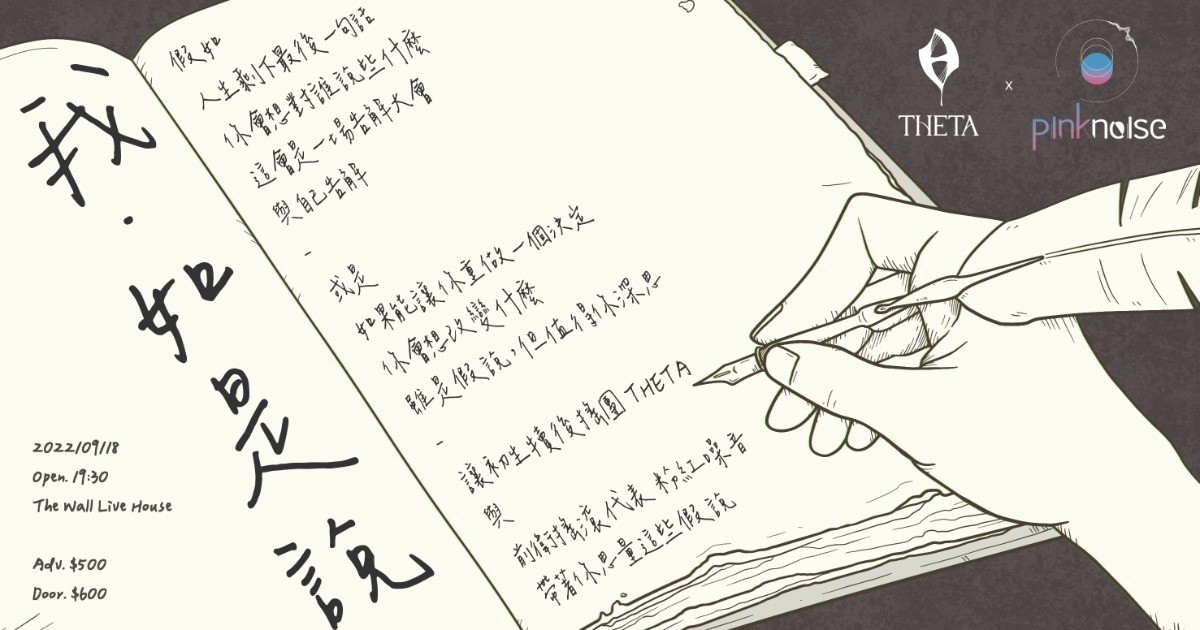 我·如是說
2022/09/18
Open. 19:30
The Wall Live House
Adv. $500
Door. $600
假如
人生剩下最後一句話
你會想對誰說些什麼
這會是一場告解大會
與自己告解
-
或是
如果能讓你重做一個決定
你會想改變什麼
雖是假說，但值得你深思
-
讓初生犢後搖團 THETA
與
前衛搖滾代表 粉紅噪音
帶著你思量這些假說
THETA
x
pinknoise